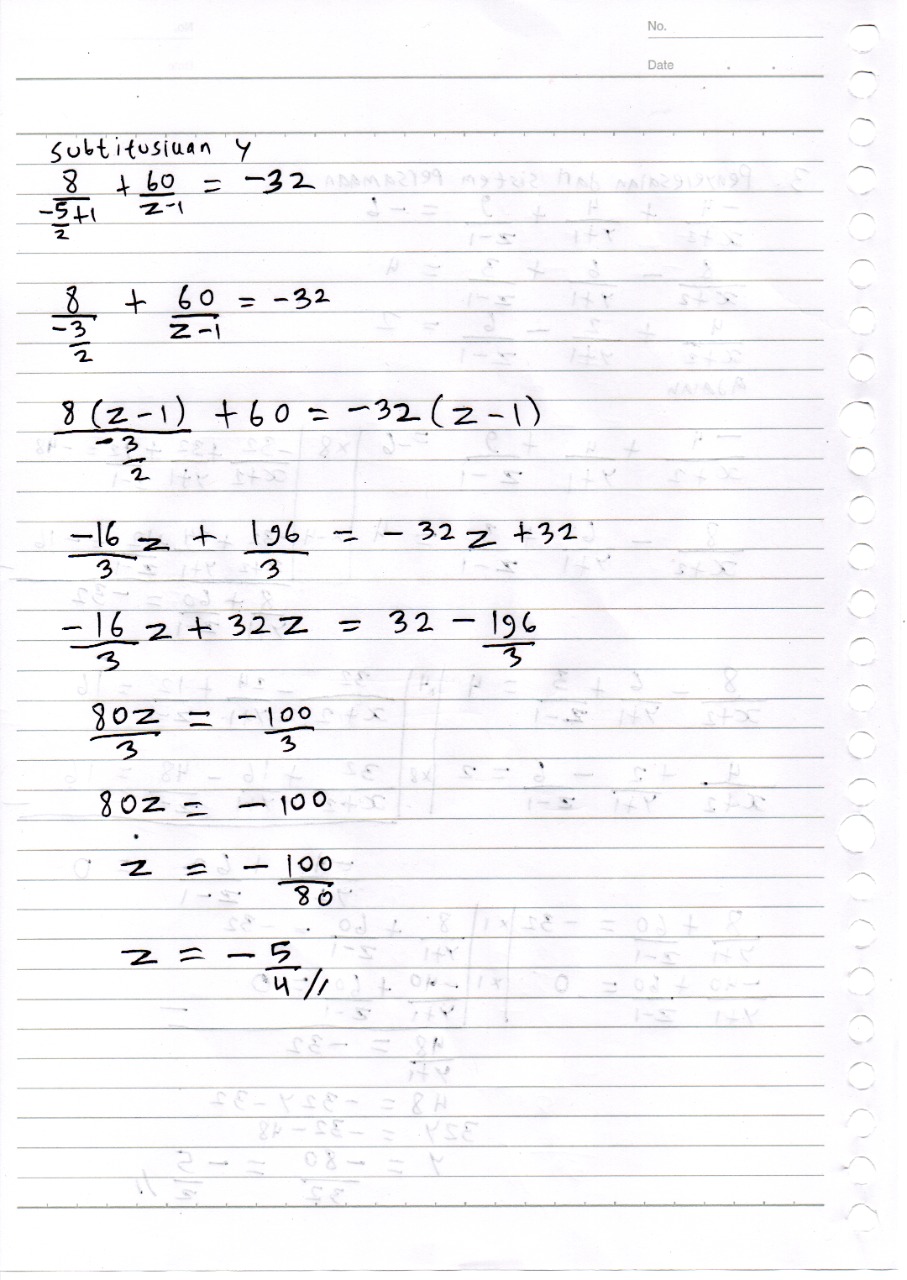 No.
Date
Subtitusiuan y
8/(-5/2+1) + 60/(z-1) = -32
8/(-3/2) + 60/(z-1) = -32
8(z-1)/(-3/2) + 60 = -32(z-1)
-16/3 z + 196/3 = -32z + 32
-16/3 z + 32z = 32 - 196/3
80z/3 = -100/3
80z = -100
z = -100/80
z = -5/4 //